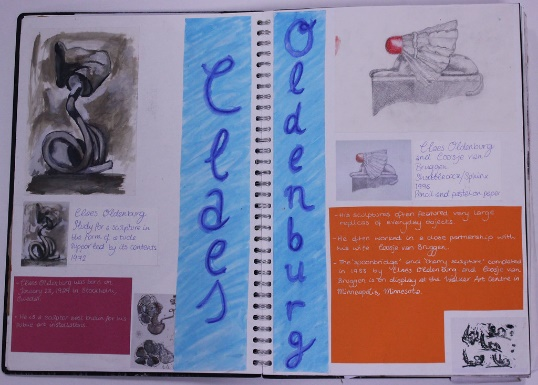 Claes
Oldenburg
Claes Oldenburg
Study for a sculpture in
the form of a
by its contents
1992
- Claes Oldenburg was born on
January 28, 1929 in Stockholm,
Sweden.
- He is a sculptor well known for his
public art installations.
Claes Oldenburg
and Coosje van
Bruggen
Shuttlecock/Sphinx
1996
Pencil and pastel on paper
- His sculptures often featured very large
replicas of everyday objects.
- He often worked in a close partnership with
his wife Coosje van Bruggen.
- The 'Spoonbridge' and 'Cherry sculpture' completed
in by Claes Oldenburg and Coosje van
Bruggen is on display at the Walker Art Centre in
Minneapolis, Minnesota.